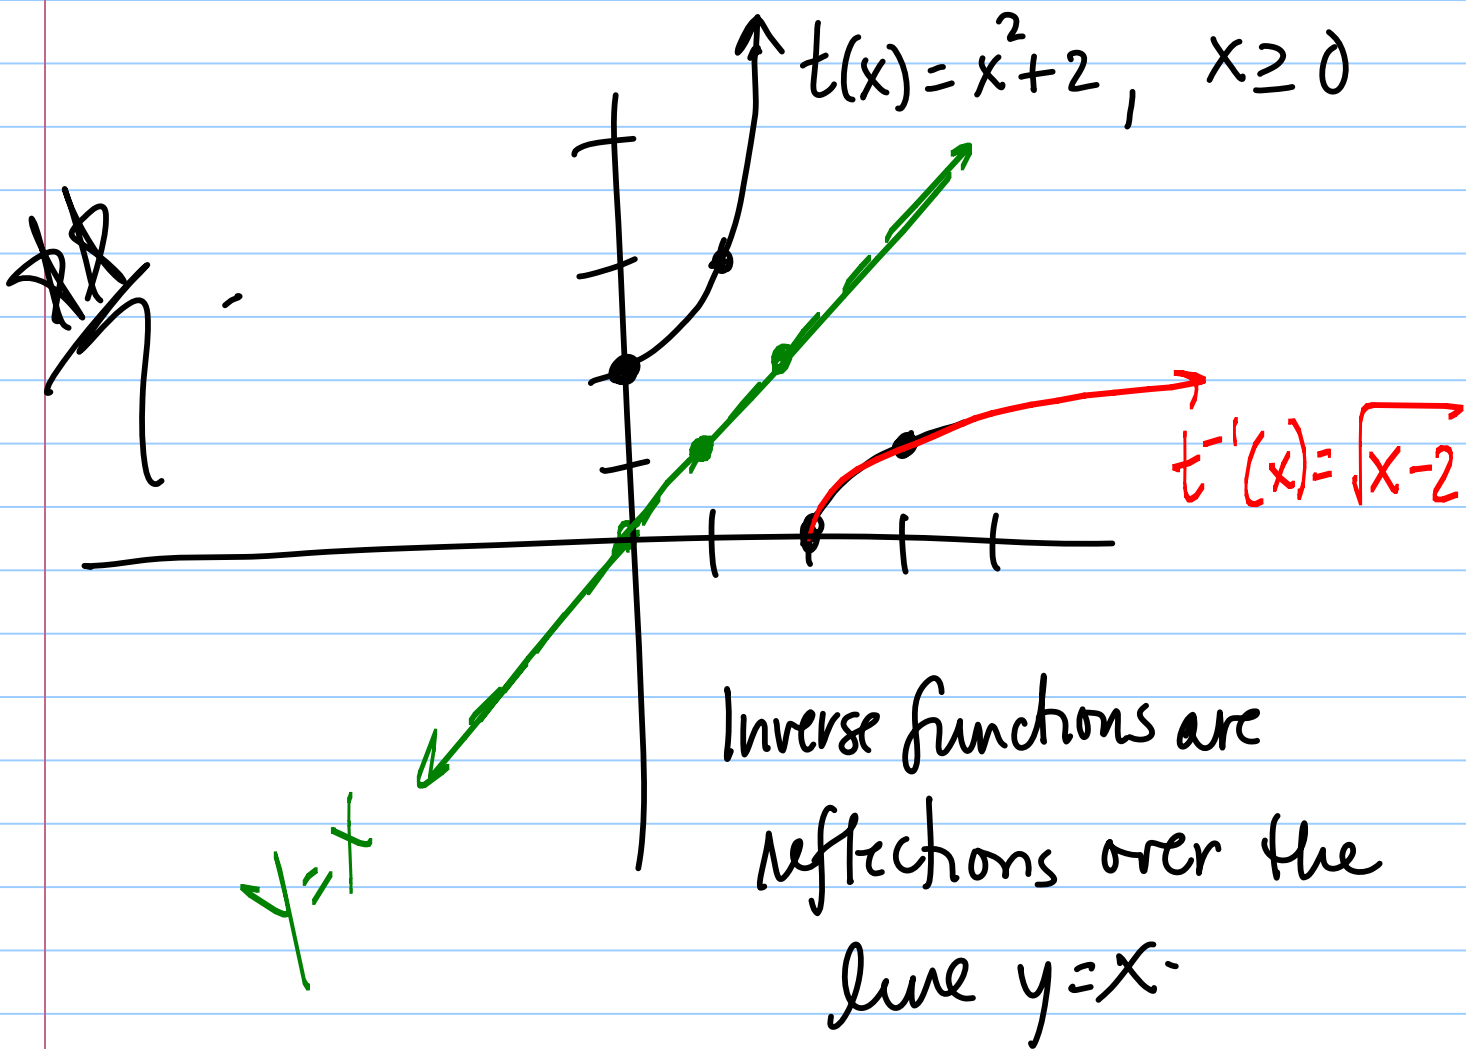 t(x) = x² + 2, x ≥ 0
t⁻¹(x) = √(x-2)
Inverse functions are
reflections over the
line y=x.
y=x